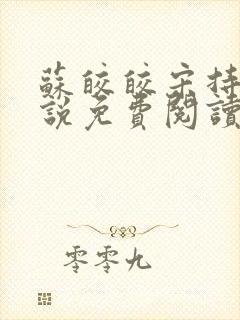 蘇皎皎宋持
說免費閱讀
零零九